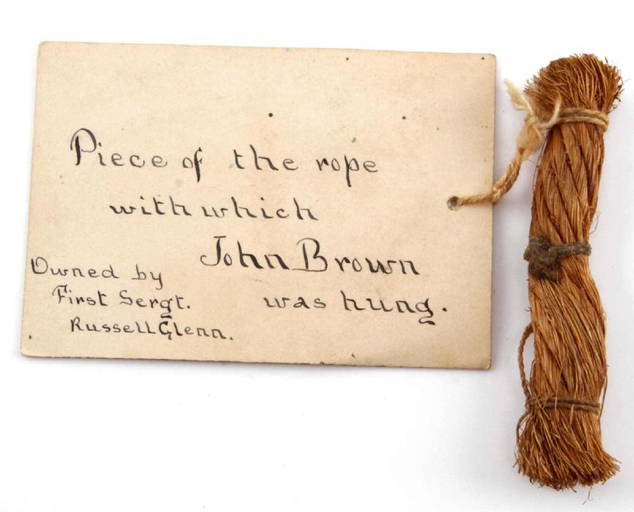 Piece of the rope
with which
John Brown
was hung.
Owned by
First Sergt.
Russell Glenn.